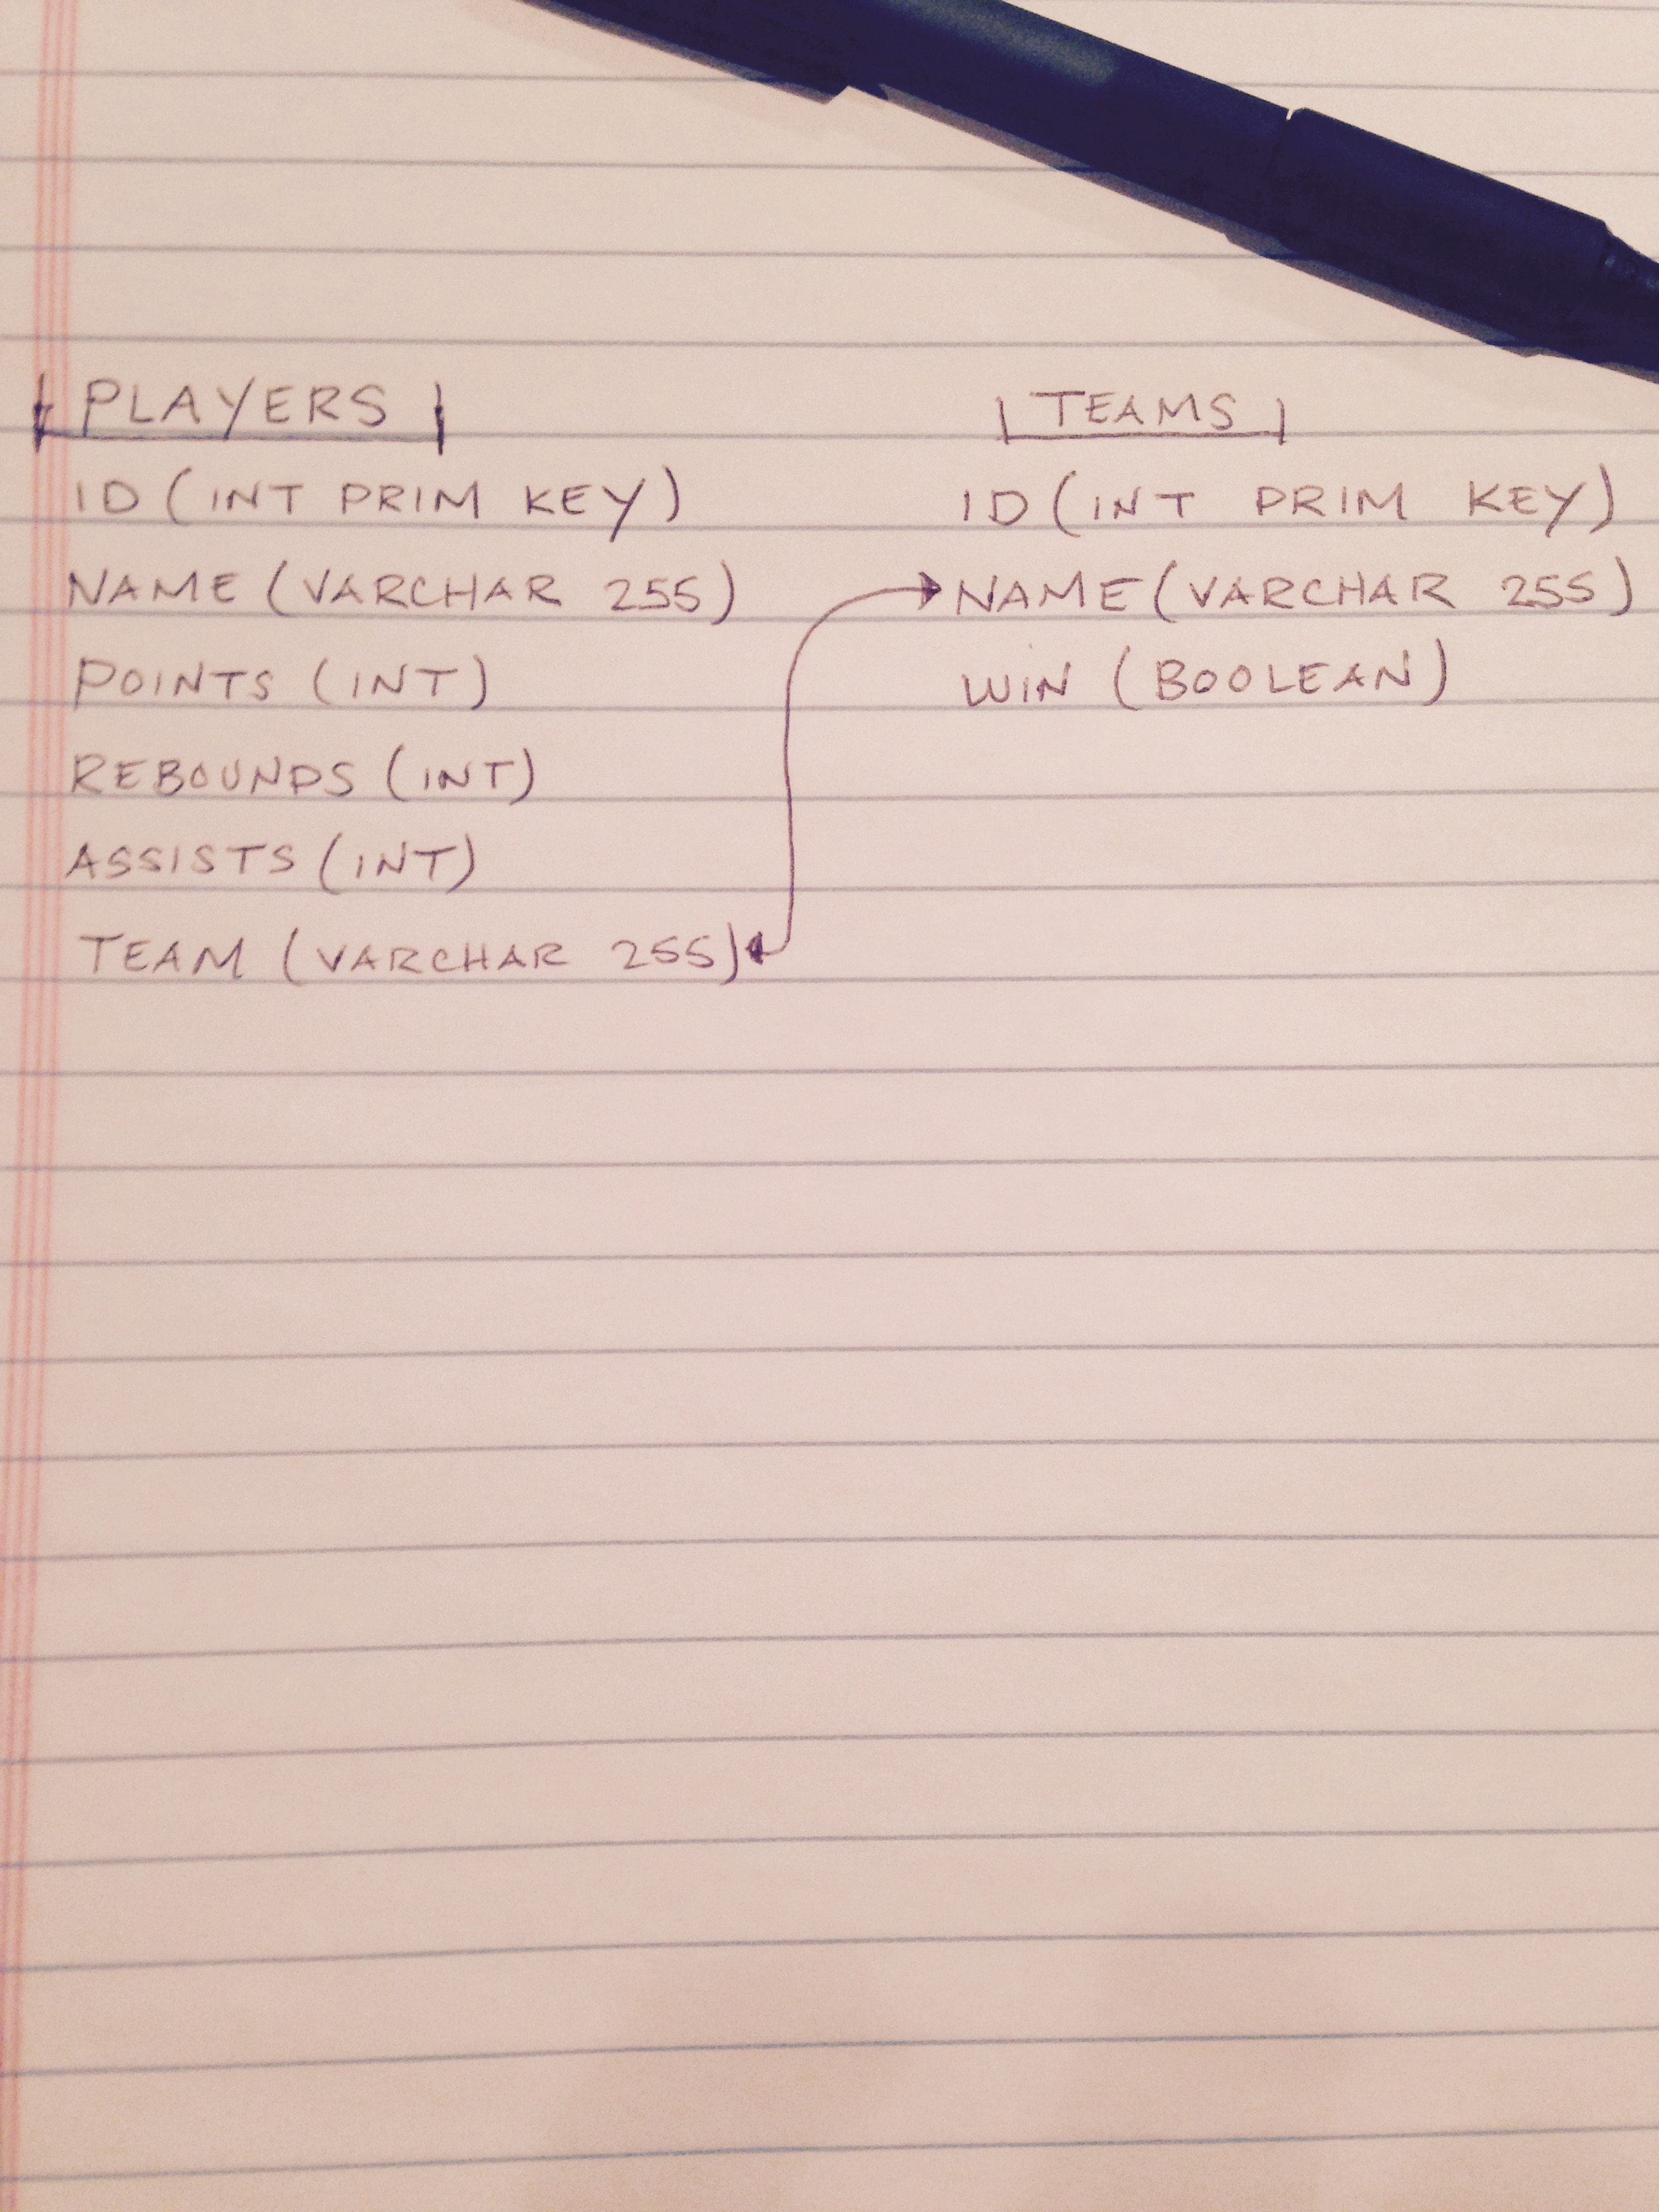 PLAYERS
ID (INT PRIM KEY)
NAME (VARCHAR 255)
POINTS (INT)
REBOUNDS (INT)
ASSISTS (INT)
TEAM (VARCHAR 255)
TEAMS
ID (INT PRIM KEY)
NAME (VARCHAR 255)
WIN (BOOLEAN)